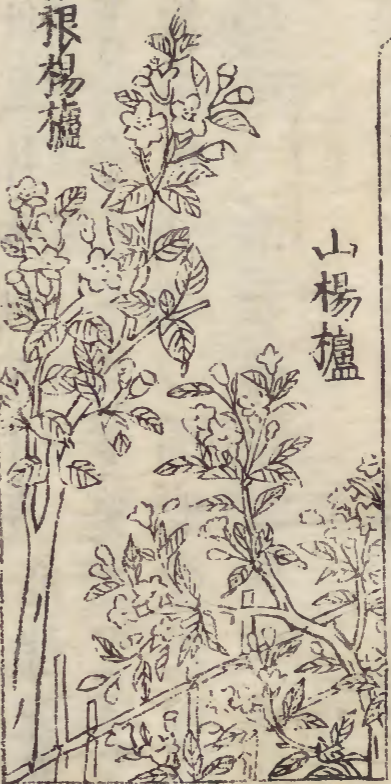 山楊櫨
根楊櫨